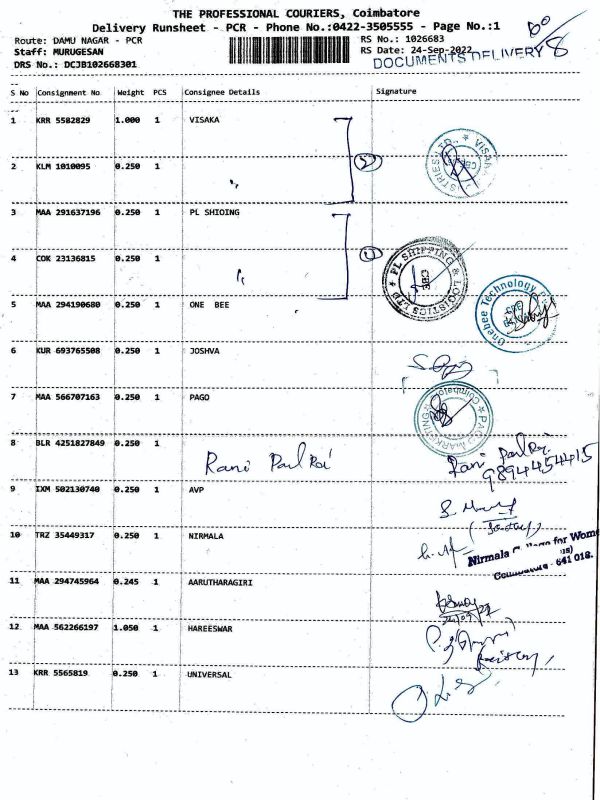 THE PROFESSIONAL COURIERS, Coimbatore
Delivery Runsheet - PCR - Phone No.:0422-3505555 - Page No.:1
Route: DAMU NAGAR - PCR
RS No.: 1026683
Staff: MURUGESAN
RS Date: 24-Sep-2022
DRS No.: DCJB102668301
DOCUMENTS DELIVERY
S No Consignment No Weight PCS Consignee Details Signature
1 KRR 5582829 1.000 1 VISAKA
2 KLM 1010095 0.250 1 "
3 MAA 291637196 0.250 1 PL SHIOING
4 COK 23136815 0.250 1 "
PL SHIPPING & LOGISTICS LTD
CBE
5 MAA 294190680 0.250 1 ONE BEE
Onebee Technology
6 KUR 693765508 0.250 1 JOSHVA
7 MAA 566707163 0.250 1 PAGO
8 BLR 4251827849 0.250 1 Rani Paul Rai
9894454415
9 IXM 502130740 0.250 1 AVP
10 TRZ 35449317 0.250 1 NIRMALA
Nirmala for Wome
641 018.
11 MAA 294745964 0.245 1 AARUTHARAGIRI
12 MAA 562266197 1.050 1 HAREESWAR
13 KRR 5565819 0.250 1 UNIVERSAL